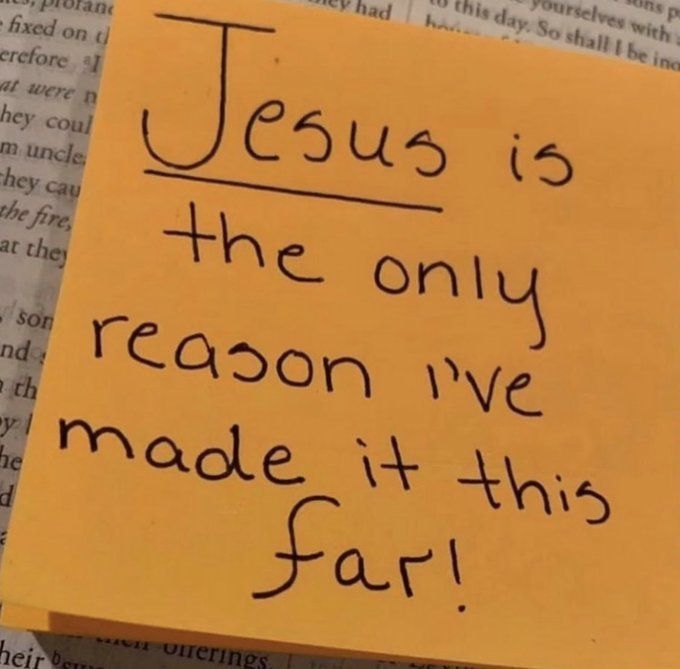 had
to this day. So shall I be inq
yourselves with
fixed on
erefore
at were n
hey coul
m uncle
they cau
the fire,
at they
Jesus is
the only
reason i've
made it this
far!
son
nd
th
offerings
heir